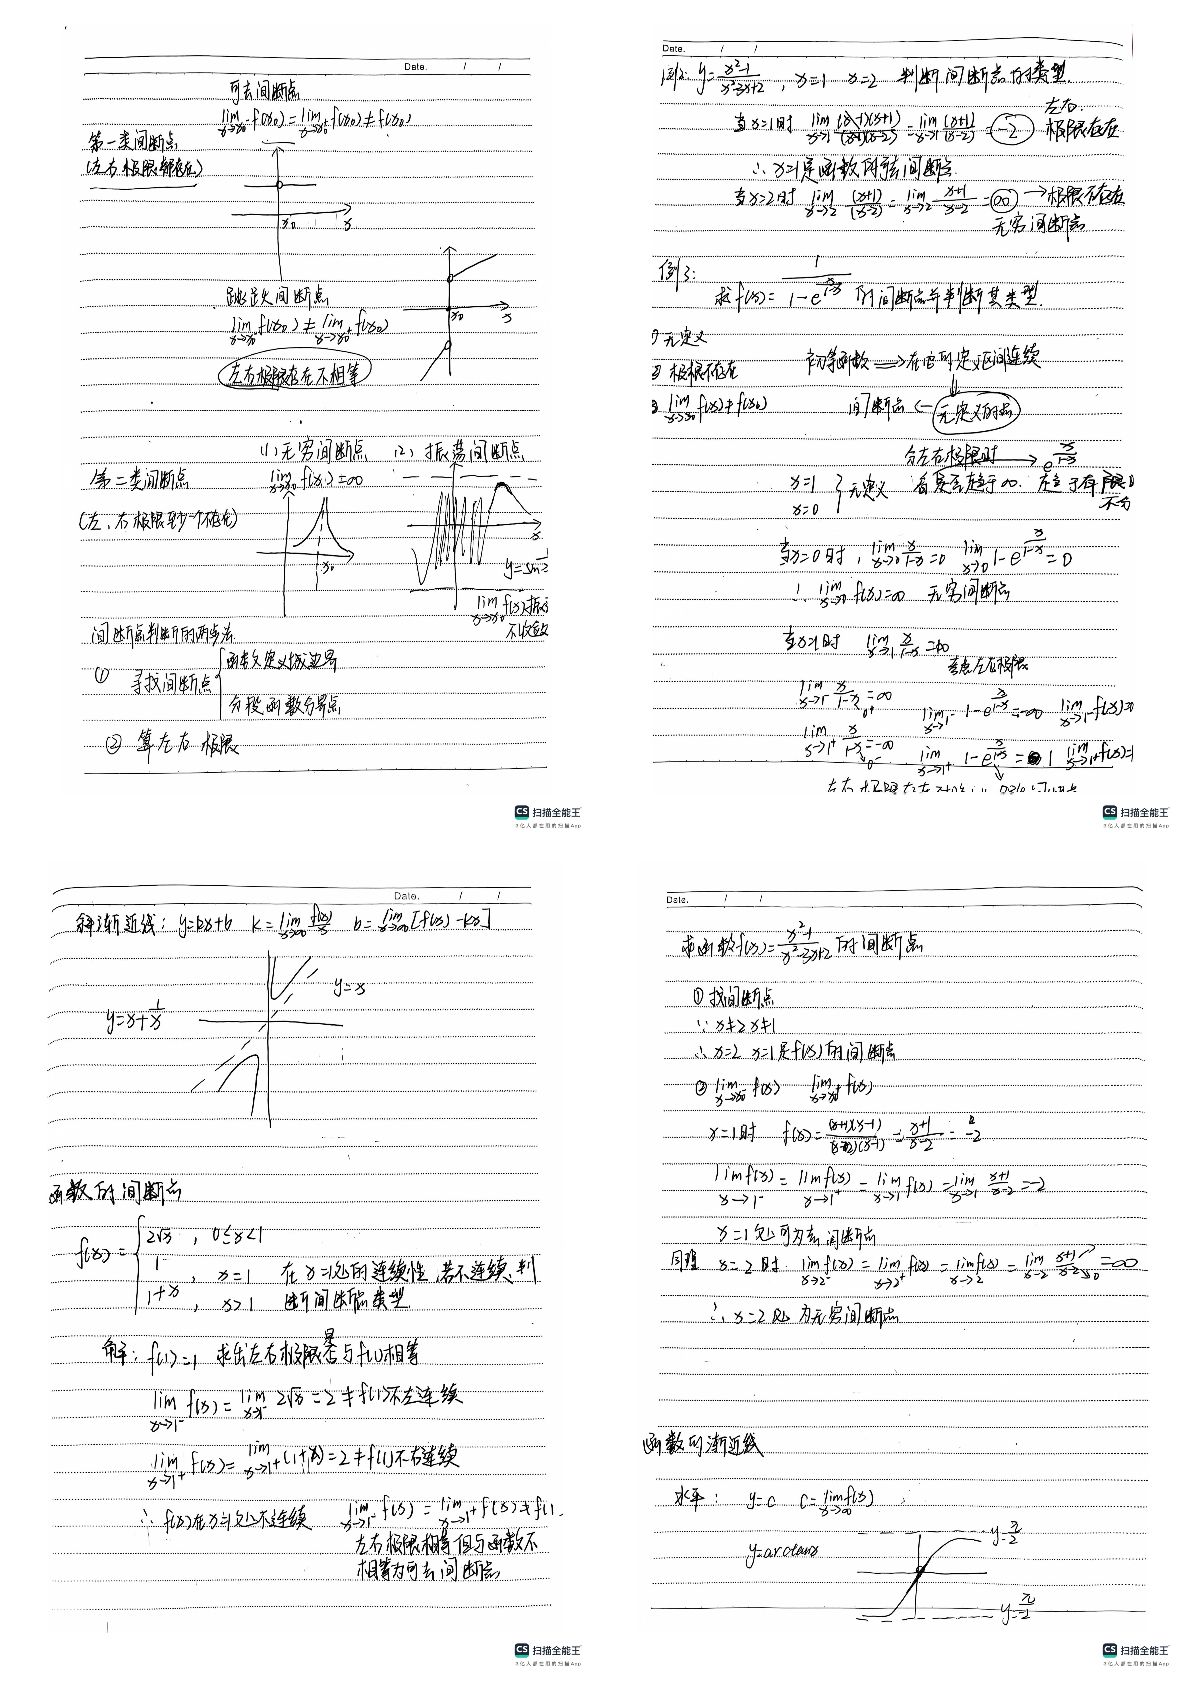 Date. / /
可去间断点
lim x→x₀⁻ f(x₀) = lim x→x₀⁺ f(x₀) ≠ f(x₀)
第一类间断点
(左右极限都存在)
x₀ x
跳跃间断点
lim x→x₀⁻ f(x₀) ≠ lim x→x₀⁺ f(x₀)
x₀ x
左右极限存在不相等
(1) 无穷间断点 (2) 振荡间断点
第二类间断点
lim x→x₀ f(x) = ∞
(左、右极限至少一个不存在)
x₀
x
y=sin 1/x
lim x→x₀ f(x) 振荡
不收敛
间断点判断的两步法
① 寻找间断点
函数定义域边界
分段函数分界点
② 算左右极限
CS 扫描全能王
3亿人都在用的扫描App
Date. / /
例2: y = (x²-1)/(x²-3x+2) , x=1 x=2 判断间断点的类型.
当x=1时 lim x→1 (x-1)(x+1)/(x-1)(x-2) = lim x→1 (x+1)/(x-2) = -2
左右
极限存在
∴ x=1是函数的可去间断点.
当x=2时 lim x→2 (x+1)/(x-2) = lim x→2 x+1/x-2 = ∞ → 极限不存在
无穷间断点
例3:
求 f(x) = 1/(1-e^(x/(1-x))) 的间断点并判断其类型.
① 无定义
② 极限不存在
初等函数 ⟹ 在它的定义区间连续
③ lim x→x₀ f(x) ≠ f(x₀)
间断点 ← 无定义的点
分左右极限时 → e^(x/(1-x))
x=1
x=0
无定义
看是否趋于∞.
不分
当x=0时, lim x→0 x/(1-x) = 0 lim x→0 1-e^(x/(1-x)) = 0
∴ lim x→0 f(x) = ∞ 无穷间断点
当x=1时 lim x→1 x/(1-x) = ∞
考虑左右极限
lim x→1⁻ x/(1-x) = ∞
0⁺
lim x→1⁻ 1-e^(x/(1-x)) = -∞ lim x→1⁻ f(x)=0
lim x→1⁺ x/(1-x) = -∞
0⁻
lim x→1⁺ 1-e^(x/(1-x)) = 1 lim x→1⁺ f(x)=1
CS 扫描全能王
3亿人都在用的扫描App
Date. / /
斜渐近线: y=kx+b k=lim x→∞ f(x)/x b=lim x→∞ [f(x)-kx]
y=x
y=x+1/x
函数的间断点
f(x) = { 2√x , 0≤x<1
1 , x=1 在x=1处的连续性,若不连续,判
1+x , x>1 断间断点类型
解: f(1)=1 求出左右极限是否与f(1)相等
lim x→1⁻ f(x) = lim x→1⁻ 2√x = 2 ≠ f(1) 不左连续
lim x→1⁺ f(x) = lim x→1⁺ (1+x) = 2 ≠ f(1) 不右连续
∴ f(x)在x=1处不连续 lim x→1⁻ f(x) = lim x→1⁺ f(x) ≠ f(1).
左右极限相等但与函数不
相等为可去间断点
CS 扫描全能王
3亿人都在用的扫描App
Date. / /
求函数f(x) = (x²-1)/(x²-3x+2) 的间断点
① 找间断点
∵ x≠2 x≠1
∴ x=2 x=1是f(x)的间断点
② lim x→x₀⁻ f(x) lim x→x₀⁺ f(x)
x=1时 f(x) = (x+1)(x-1)/(x-2)(x-1) = (x+1)/(x-2) = -2
lim x→1⁻ f(x) = lim x→1⁺ f(x) = lim x→1 f(x) = lim x→1 (x+1)/(x-2) = -2
x=1处可为去间断点
同理 x=2时 lim x→2⁻ f(x) = lim x→2⁺ f(x) = lim x→2 f(x) = lim x→2 (x+1)/(x-2) = ∞
∴ x=2处为无穷间断点
函数的渐近线
水平: y=c c=lim x→∞ f(x)
y=arctanx
y=π/2
y=-π/2
CS 扫描全能王
3亿人都在用的扫描App